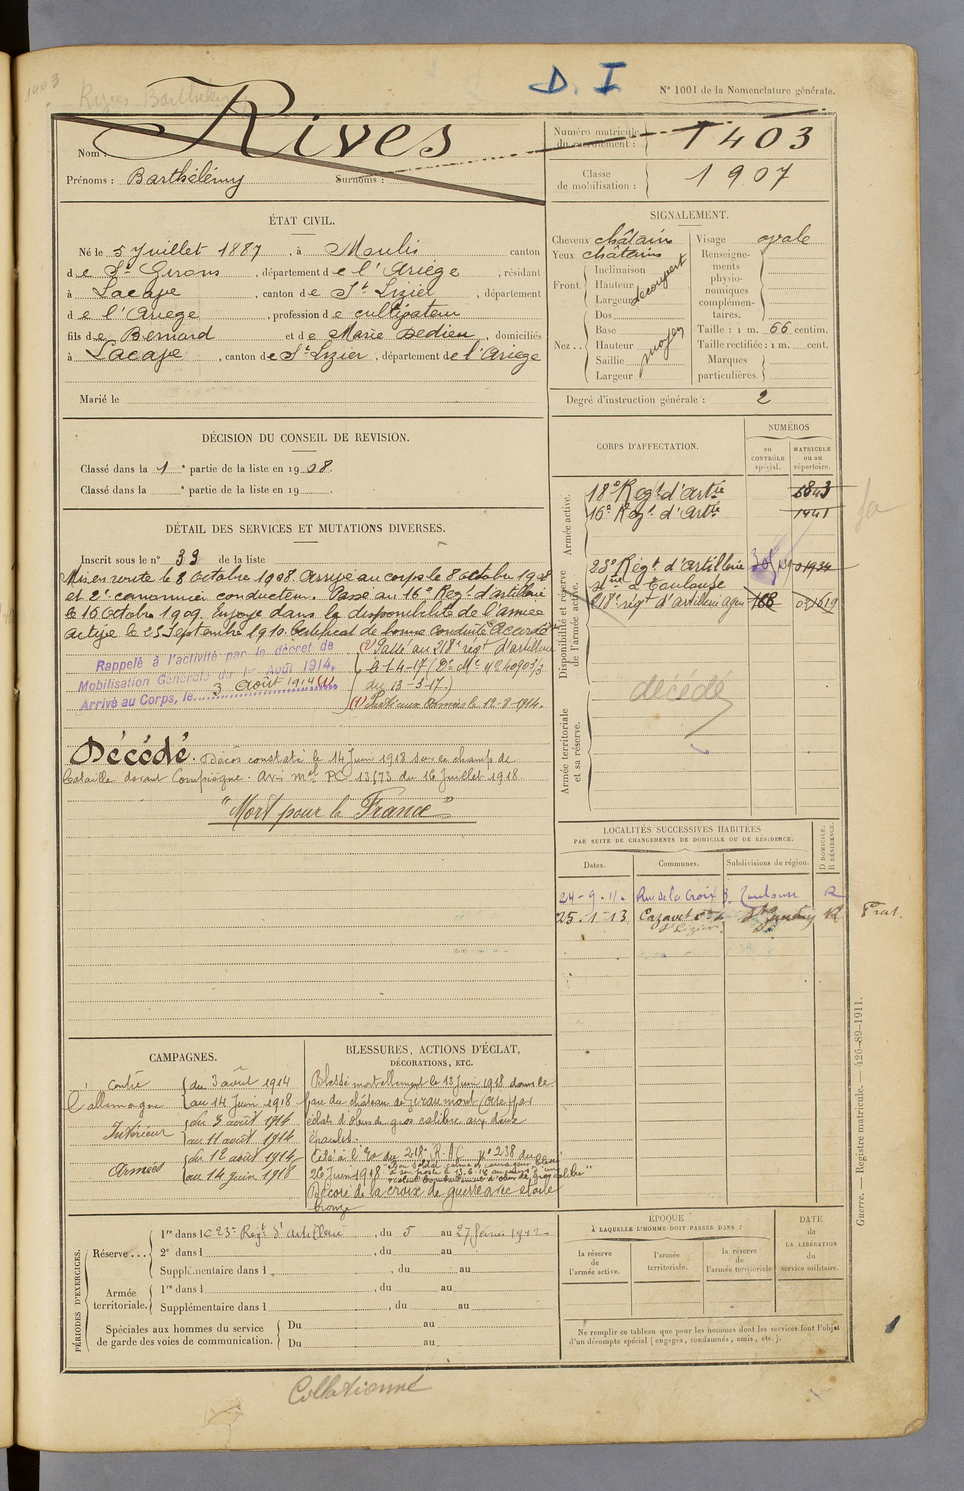 1403
Rives Barthélémy
D. I
N° 1001 de la Nomenclature générale.
Nom : Rives
Prénoms : Barthélémy Surnoms :
Numéro matricule du recrutement : 1403
Classe de mobilisation : 1907
ÉTAT CIVIL.
Né le 5 Juillet 1887, à Moulis canton
de St Girons, département de l'Ariège, résidant
à Lacave, canton de St Lizier, département
de l'Ariège, profession de cultivateur
fils de Bernard et de Marie Dedieu, domiciliés
à Lacave, canton de St Lizier, département de l'Ariège
Marié le
SIGNALEMENT.
Cheveux châtains
Yeux châtains
Front. Inclinaison
Hauteur
Largeur
découvert
Nez.. Dos
Base
Hauteur
Saillie
Largeur
moyen
Visage ovale
Renseignements physionomiques complémentaires.
Taille : 1 m. 66 centim.
Taille rectifiée : 1 m. cent.
Marques particulières.
Degré d'instruction générale : 2
DÉCISION DU CONSEIL DE REVISION.
Classé dans la 1e partie de la liste en 1908.
Classé dans la e partie de la liste en 19 .
CORPS D'AFFECTATION.
NUMÉROS
au CONTRÔLE spécial.
MATRICULE ou au répertoire.
Armée active.
18e Régt d'Artie 6843
16e Régt d'Artie 1441
Disponibilité et réserve de l'armée active.
23e Régt d'Artillerie
à Toulouse
218e régt d'artillerie Agen 168
décédé
Armée territoriale et sa réserve.
DÉTAIL DES SERVICES ET MUTATIONS DIVERSES.
Inscrit sous le n° 33 de la liste
Mis en route le 8 octobre 1908. Arrivé au corps le 8 octobre 1908
et 2e canonnier conducteur. Passé au 16e Régt d'artillerie
le 16 Octobre 1909. Envoyé dans la disponibilité de l'armée
active le 25 Septembre 1910. Certificat de bonne conduite Accordé
Rappelé à l'activité par le décret de
Mobilisation Générale du 1er Août 1914.
Arrivé au Corps, le 3 Août 1914 (1)
(2) Passé au 218e régt d'artillerie
à 1-4-17 (Dn Mle n° 40903/3
du 13-3-17)
(1) Parti aux Armées le 12-8-1914.
Décédé. Décès constaté le 14 Juin 1918 sur le champ de
bataille devant Compiègne. Avis mel PC 13573 du 16 Juillet 1918.
"Mort pour la France"
LOCALITÉS SUCCESSIVES HABITÉES
PAR SUITE DE CHANGEMENTS DE DOMICILE OU DE RÉSIDENCE.
Dates. Communes. Subdivisions de région. D DOMICILE. R RÉSIDENCE.
24-9-11. Rue de la Croix Toulouse R
25-1-13 Cazavet R
St Lizier
CAMPAGNES.
contre l'allemagne du 3 août 1914
au 14 Juin 1918
Intérieur du 3 août 1914
au 11 août 1914
Armées du 12 août 1914
au 14 juin 1918
BLESSURES, ACTIONS D'ÉCLAT,
DÉCORATIONS, ETC.
Blessé mortellement le 13 Juin 1918 dans le
parc du château de
éclats d'obus de gros calibre
épaules.
Cité à l'ro du 218e R.A.C n° 238 du
26 Juin 1918
Décoré de la croix de guerre avec étoile
bronze
PÉRIODES D'EXERCICES.
Réserve... 1re dans le 23e Régt d'artillerie, du 5 au 27 février 1912
2e dans l , du au
Supplémentaire dans l , du au
Armée territoriale. 1re dans l , du au
Supplémentaire dans l , du au
Spéciales aux hommes du service de garde des voies de communication. Du au
Du au
ÉPOQUE
À LAQUELLE L'HOMME DOIT PASSER DANS :
la réserve de l'armée active.
l'armée territoriale.
la réserve de l'armée territoriale
DATE de LA LIBÉRATION du service militaire.
Ne remplir ce tableau que pour les hommes dont les services font l'objet
d'un décompte spécial (engagés, condamnés, omis, etc.).
Guerre. — Registre matricule. — 426-89-1911.
Collationné